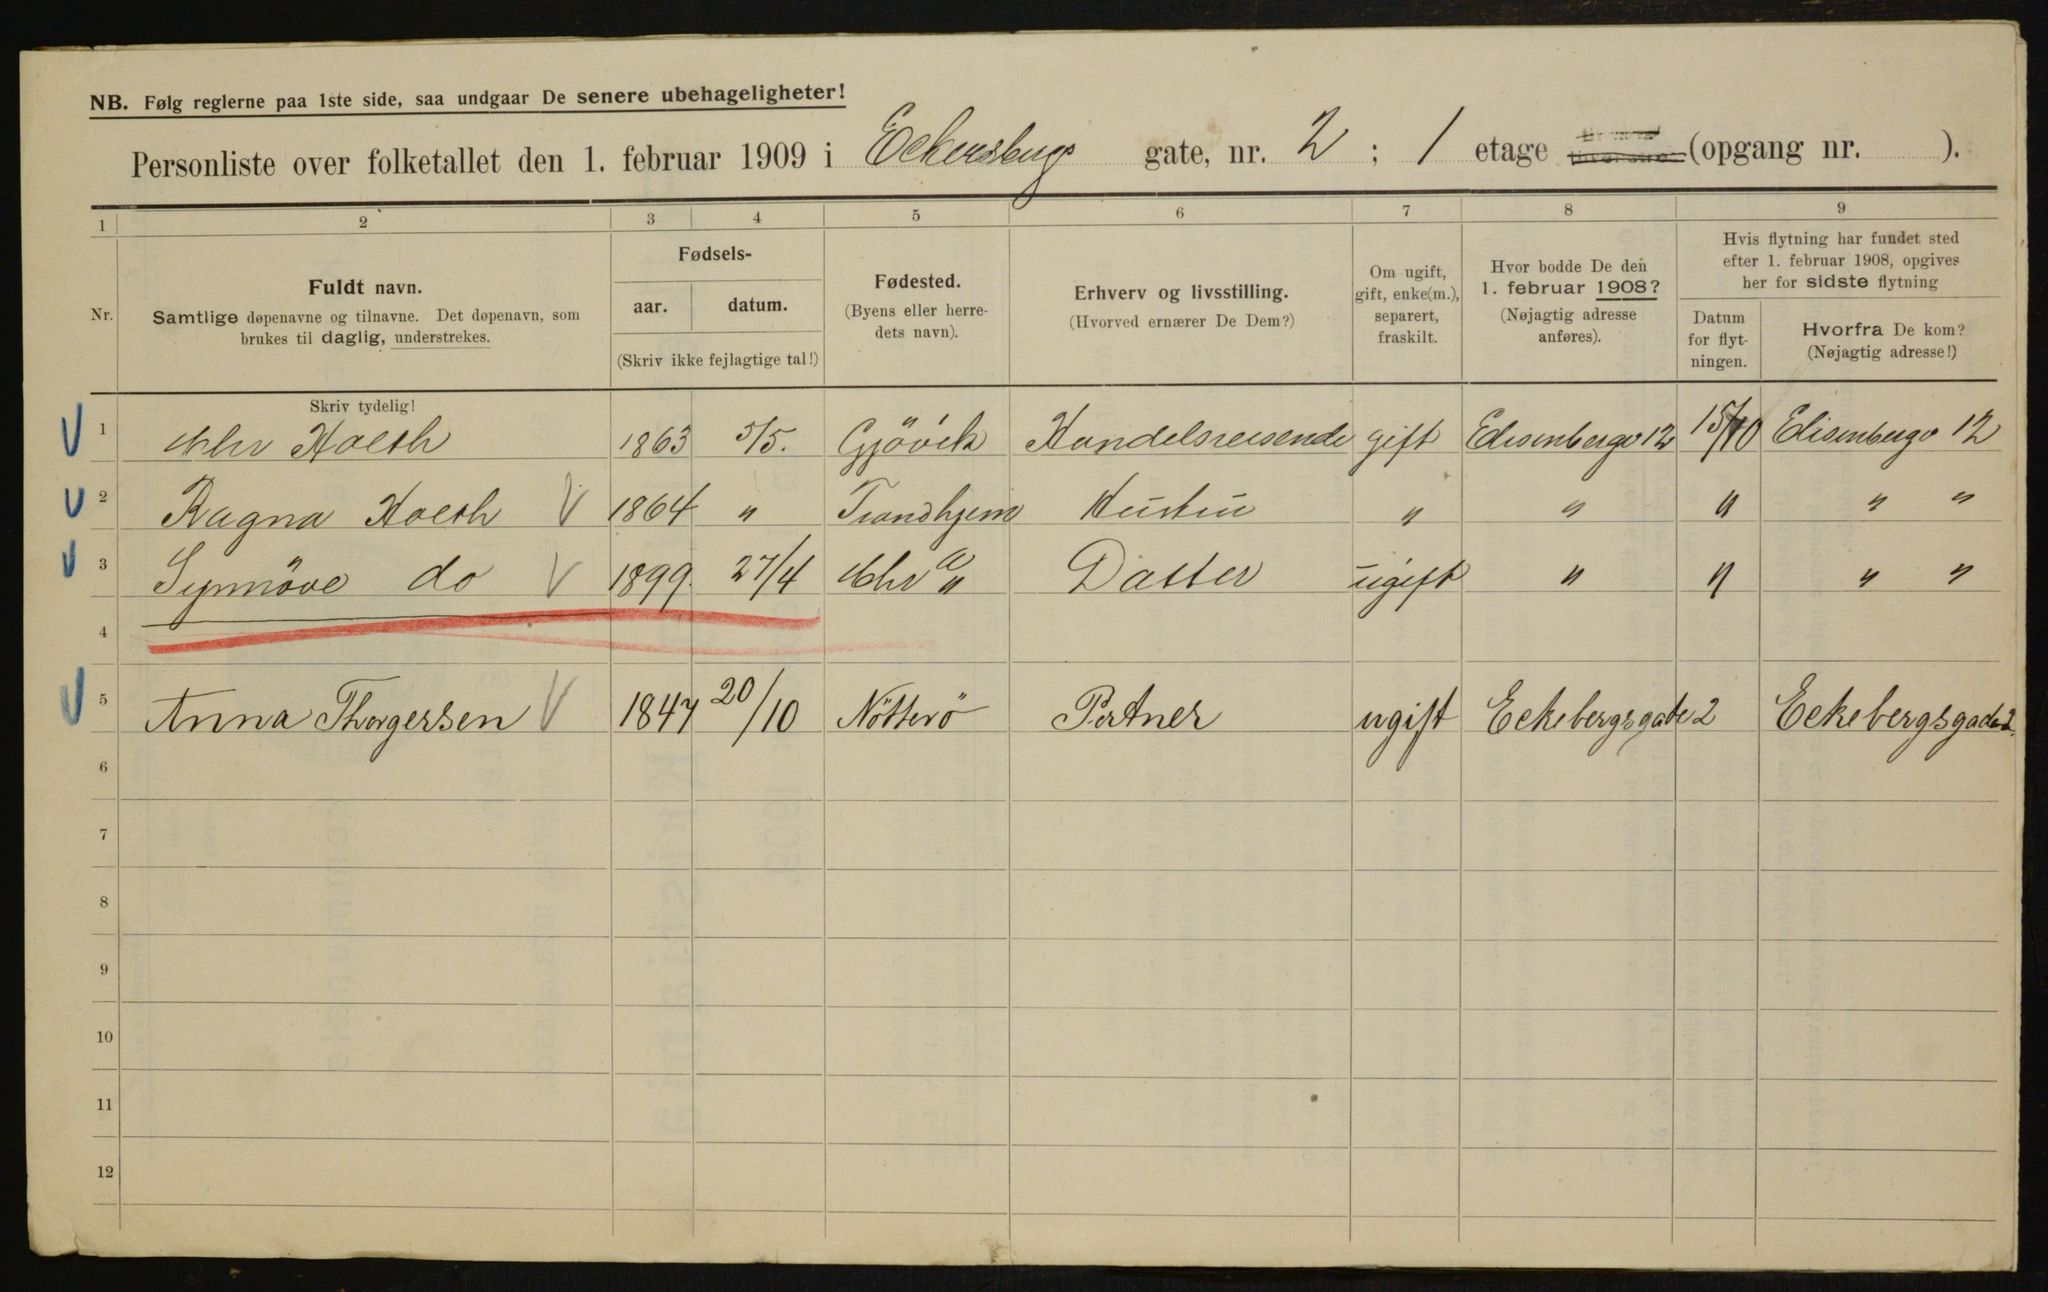 NB. Følg reglerne paa 1ste side, saa undgaar De senere ubehageligheter!
Personliste over folketallet den 1. februar 1909 i Eckersbergs gate, nr. 2 ; 1 etage (opgang nr. ).
1 2 3 4 5 6 7 8 9
Nr.
Fuldt navn.
Samtlige døpenavne og tilnavne. Det døpenavn, som
brukes til daglig, understrekes.
Fødsels-
aar. datum.
(Skriv ikke fejlagtige tal!)
Fødested.
(Byens eller herre-
dets navn).
Erhverv og livsstilling.
(Hvorved ernærer De Dem?)
Om ugift,
gift, enke(m.),
separert,
fraskilt.
Hvor bodde De den
1. februar 1908?
(Nøjagtig adresse
anføres).
Hvis flytning har fundet sted
efter 1. februar 1908, opgives
her for sidste flytning
Datum
for flyt-
ningen.
Hvorfra De kom?
(Nøjagtig adresse!)
Skriv tydelig!
1 Chr Holth 1863 5/5. Gjövik Handelsreisende gift Elisenbergv 12 15/10 Elisenbergv 12
2 Ragna Holth 1864 " Trondhjem Hustru " " " " "
3 Synnöve do 1899 27/4 Chr a " Datter ugift " " " "
4
5 Anna Thorgersen 1847 20/10 Nötterö Portner ugift Eckebergsgade 2 Eckebergsgade 2.
6
7
8
9
10
11
12